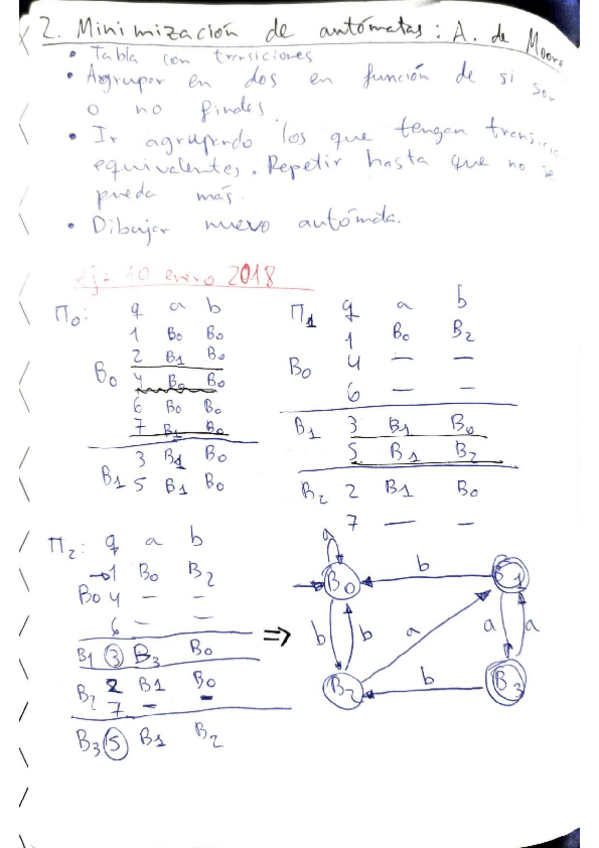 2. Minimización de autómatas: A. de Moore
• Tabla con transiciones
• Agrupar en dos en función de si son
o no finales.
• Ir agrupando los que tengan
equivalentes. Repetir hasta que no se
pueda más.
• Dibujar nuevo autómata.
ej: 10 enero 2018
Π0: q a b
1 B0 B0
2 B1 B0
B0 4 B0 B0
6 B0 B0
7 B1 B0
3 B1 B0
B1 5 B1 B0
Π1 q a b
1 B0 B2
B0 4 — —
6 — —
B1 3 B1 B0
5 B1 B2
B2 2 B1 B0
7 — —
Π2: q a b
→1 B0 B2
B0 4 — —
6 — —
B1 3 B3 B0
B2 2 B1 B0
7 — —
B3 5 B1 B2
⇒
a
B0
b
B1
b
b
a
a
a
B2
b
B3